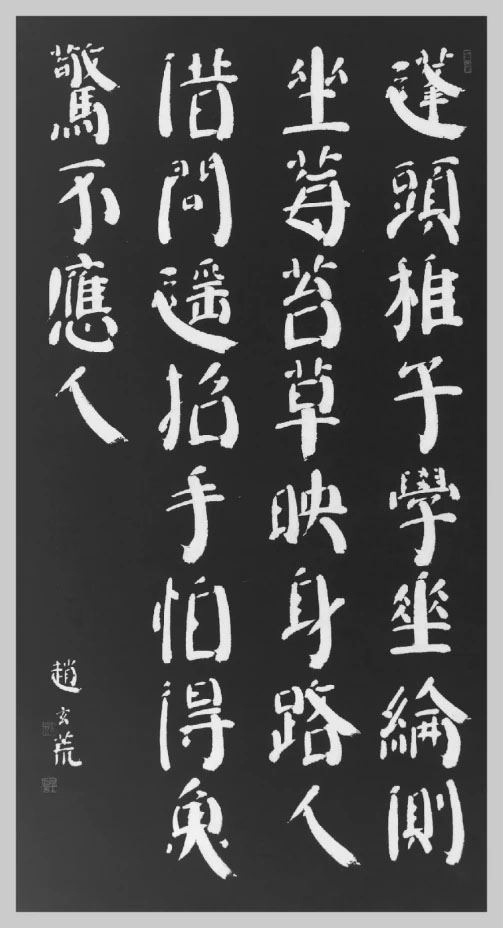 蓬頭稚子學垂綸側
坐莓苔草映身路人
借問遙招手怕得魚
驚不應人
趙玄荒